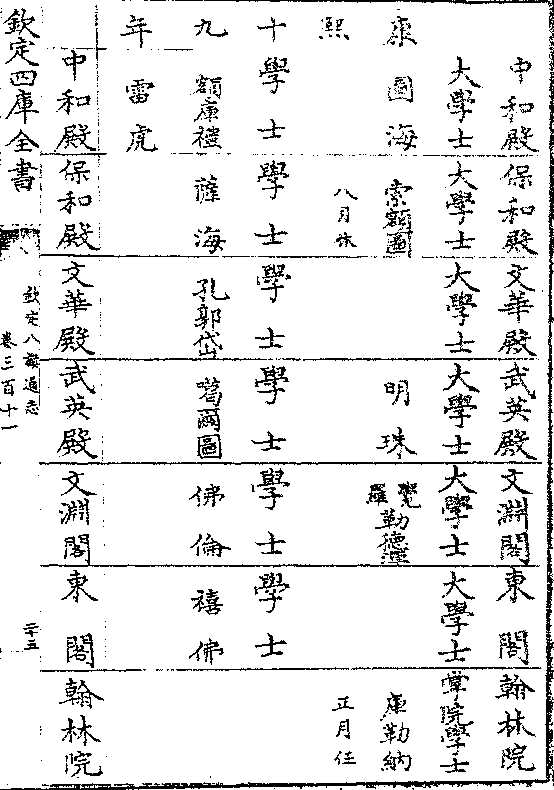 中和殿 保和殿 文華殿 武英殿 文淵閣 東閣 翰林院
大學士 大學士 大學士 大學士 大學士 大學士 掌院學士
康 圖海 索額圖 明珠 覺羅勒德洪 庫勒納
熙 八月休 正月任
十 學士 學士 學士 學士 學士 學士
九 額庫禮 薩海 孔郭岱 噶爾圖 佛倫 禧佛
年 雷虎
中和殿 保和殿 文華殿 武英殿 文淵閣 東閣 翰林院
欽定四庫全書
欽定八旗通志
卷三百十一